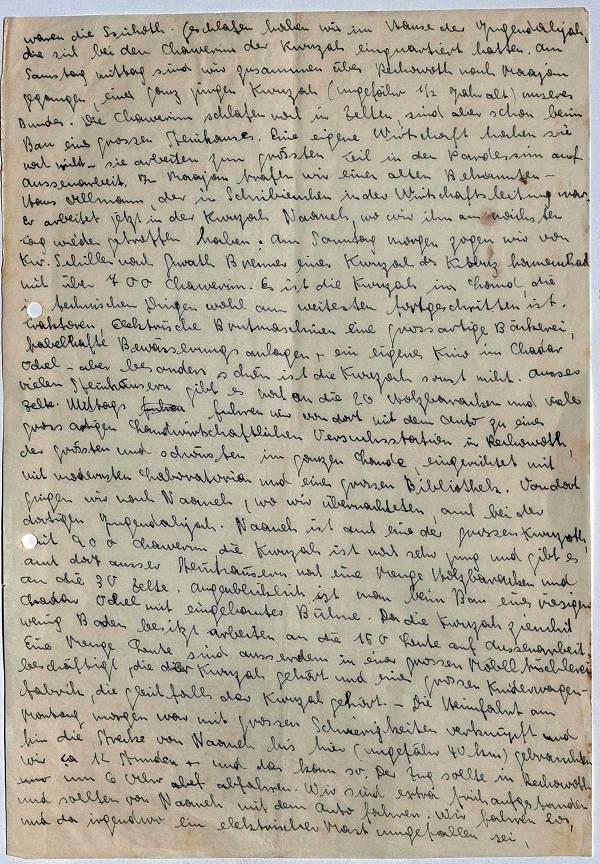 waren die Szihoth. Geschlafen haben wir im Hause der Jugendalijah,
die sie bei den Chawerim der Kwuzah einquartiert hatten. Am
Samstag mittag sind wir zusammen über Rechowoth nach Maajan
gegangen, einer ganz jungen Kwuzah (ungefähr 1/2 Jahr alt) unseres
Bundes. Die Chawerim schlafen noch in Zelten, sind aber schon beim
Bau eines grossen Steinhauses. Eine eigene Wirtschaft haben sie
noch nicht – sie arbeiten zum grössten Teil in den Pardessim auf
Aussenarbeit. In Maajan trafen wir einen alten Bekannten –
Hans Ollmann, der in Schniebinchen in der Wirtschaftsleitung war.
Er arbeitet jetzt in der Kwuzah Naaneh, wo wir ihn am nächsten
Tag wieder getroffen haben. Am Sonntag morgen zogen wir von
Kw. Schiller nach Givath Brenner einer Kwuzah des Kibbuz hameuchad
mit über 700 Chawerim. Es ist die Kwuzah im Land, die
in technischen Dingen wohl am weitesten fortgeschritten ist.
Traktoren, elektrische Brutmaschinen eine grossartige Bäckerei,
fabelhafte Bewässerungsanlagen + ein eigenes Kino im Chadar
Ochel – aber besonders schön ist die Kwuzah sonst nicht. Ausser
vielen Steinhäusern gibt es noch an die 20 Holzbaracken und viele
Zelte. Mittags fuhren wir von dort mit dem Auto zu einer
grossartigen Landwirtschaftlichen Versuchsstation in Rechowoth,
der grössten und schönsten im ganzen Lande, eingerichtet mit
mit modernsten Laboratorien und einer grossen Bibliothek. Von dort
gingen wir nach Naaneh, wo wir übernachteten, auch bei der
dortigen Jugendalijah. Naaneh ist auch eine der grossen Kwuzoth,
mit 400 Chawerim die Kwuzah ist noch sehr jung und gibt es
auch dort ausser Steinhäusern noch eine Menge Holzbaracken und
an die 30 Zelte. Augenblicklich ist man beim Bau eines riesigen
Chadar Ochel mit eingebauter Bühne. Da die Kwuzah ziemlich
wenig Boden besitzt arbeiten an die 150 Leute auf Aussenarbeit.
Eine Menge Leute sind ausserdem in einer grossen Möbeltischlerei
beschäftigt, die der Kwuzah gehört und einer grossen Kinderwagen-
fabrik, die gleichfalls der Kwuzah gehört. – Die Heimfahrt am
Montag morgen war mit grossen Schwierigkeiten verknüpft und
die Strecke von Naaneh bis hier (ungefähr 70 km) gebrauchten
wir ca 12 Stunden und das kam so. Der Zug sollte in Rechowoth
um 6 Uhr abfahren. Wir sind extra früh aufgestanden
und sollten von Naaneh mit dem Auto fahren. Wir fahren los,
und da irgendwo ein elektrischer Mast umgefallen sei,